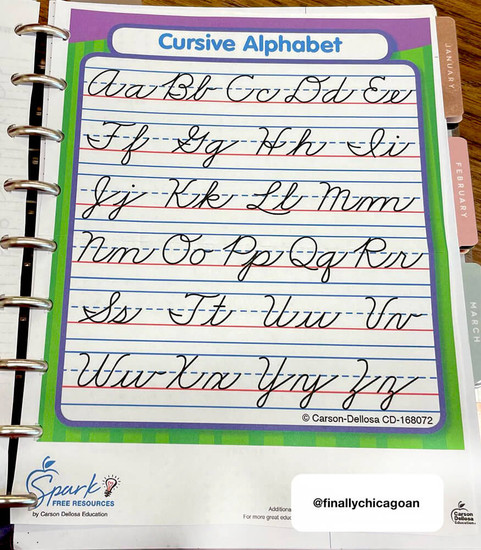 Cursive Alphabet
Aa Bb Cc Dd Ee
Ff Gg Hh Ii
Jj Kk Ll Mm
Nn Oo Pp Qq Rr
Ss Tt Uu Vv
Ww Xx Yy Zz
© Carson-Dellosa CD-168072
JANUARY
FEBRUARY
MARCH
Spark
FREE RESOURCES
by Carson Dellosa Education
Additiona
For more great educ
@finallychicagoan
Carson
Dellosa
Education